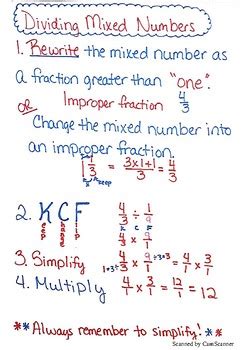 Dividing Mixed Numbers
1. Rewrite the mixed number as
a fraction greater than "one".
Improper fraction 4/3
OR
Change the mixed number into
an improper fraction.
1 1/3 = 3×1+1/3 = 4/3
keep
2. K C F 4/3 ÷ 1/9
keep change flip
K C F
4/3 × 9/1
3. Simplify 4/3 × 9/1 ÷3=3 = 4/1 × 3/1
4. Multiply 4/1 × 3/1 = 12/1 = 12
**Always remember to simplify!**
Scanned by CamScanner